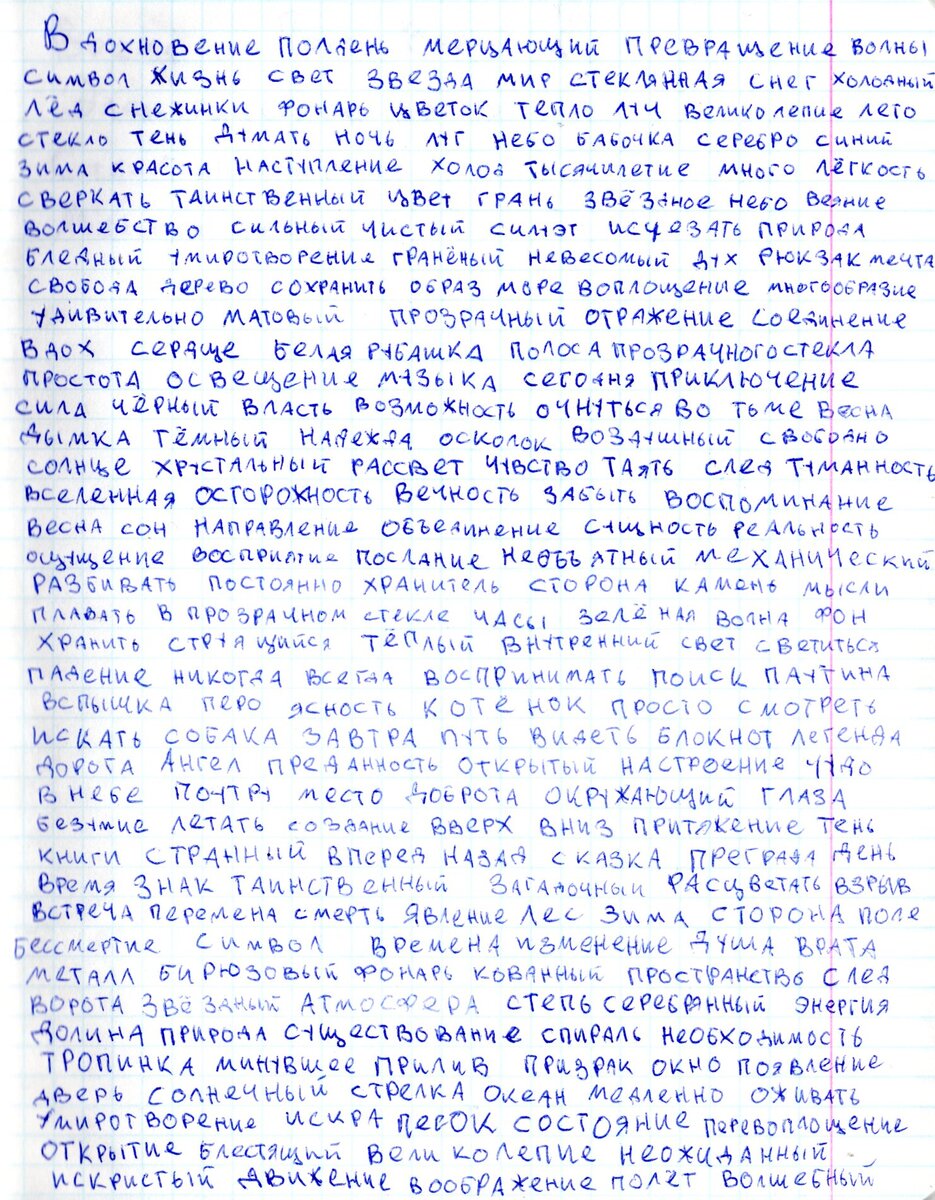 Вдохновение полдень мерцающий превращение волны
символ жизнь свет звезда мир стеклянная снег холодный
лёд снежинки фонарь цветок тепло луч великолепие лето
стекло тень думать ночь луг небо бабочка серебро синий
зима красота наступление холод тысячилетие много лёгкость
сверкать таинственный цвет грань звёздное небо веяние
волшебство сильный чистый силуэт исчезать природа
бледный умиротворение гранёный невесомый дух рюкзак мечта
свобода дерево сохранить образ море воплощение многообразие
удивительно матовый прозрачный отражение соединение
вдох сердце белая рубашка полоса прозрачного стекла
простота освещение музыка сегодня приключение
сила чёрный власть возможность очнуться во тьме весна
дымка тёмный надежда осколок воздушный свободно
солнце хрустальный рассвет чувство таять след туманность
вселенная осторожность вечность забыть воспоминание
весна сон направление объединение сущность реальность
ощущение восприятие послание необъятный механический
разбивать постоянно хранитель сторона камень мысли
плавать в прозрачном стекле часы зелёная волна фон
хранить струящийся тёплый внутренний свет светиться
падение никогда всегда воспринимать поиск паутина
вспышка перо ясность котёнок просто смотреть
искать собака завтра путь видеть блокнот легенда
дорога Ангел преданность открытый настроение чудо
в небе поутру место доброта окружающий глаза
безумие летать создание вверх вниз притяжение тень
книги странный вперед назад сказка преграда день
время знак таинственный загадочный расцветать взрыв
встреча перемена смерть явление лес зима сторона поле
бессмертие символ времена изменение душа врата
металл бирюзовый фонарь кованный пространство след
ворота звёздный атмосфера степь серебрянный энергия
долина природа существование спираль необходимость
тропинка минувшее прилив призрак окно появление
дверь солнечный стрелка океан медленно оживать
умиротворение искра песок состояние перевоплощение
открытие блестящий великолепие неожиданный
искристый движение воображение полёт волшебный